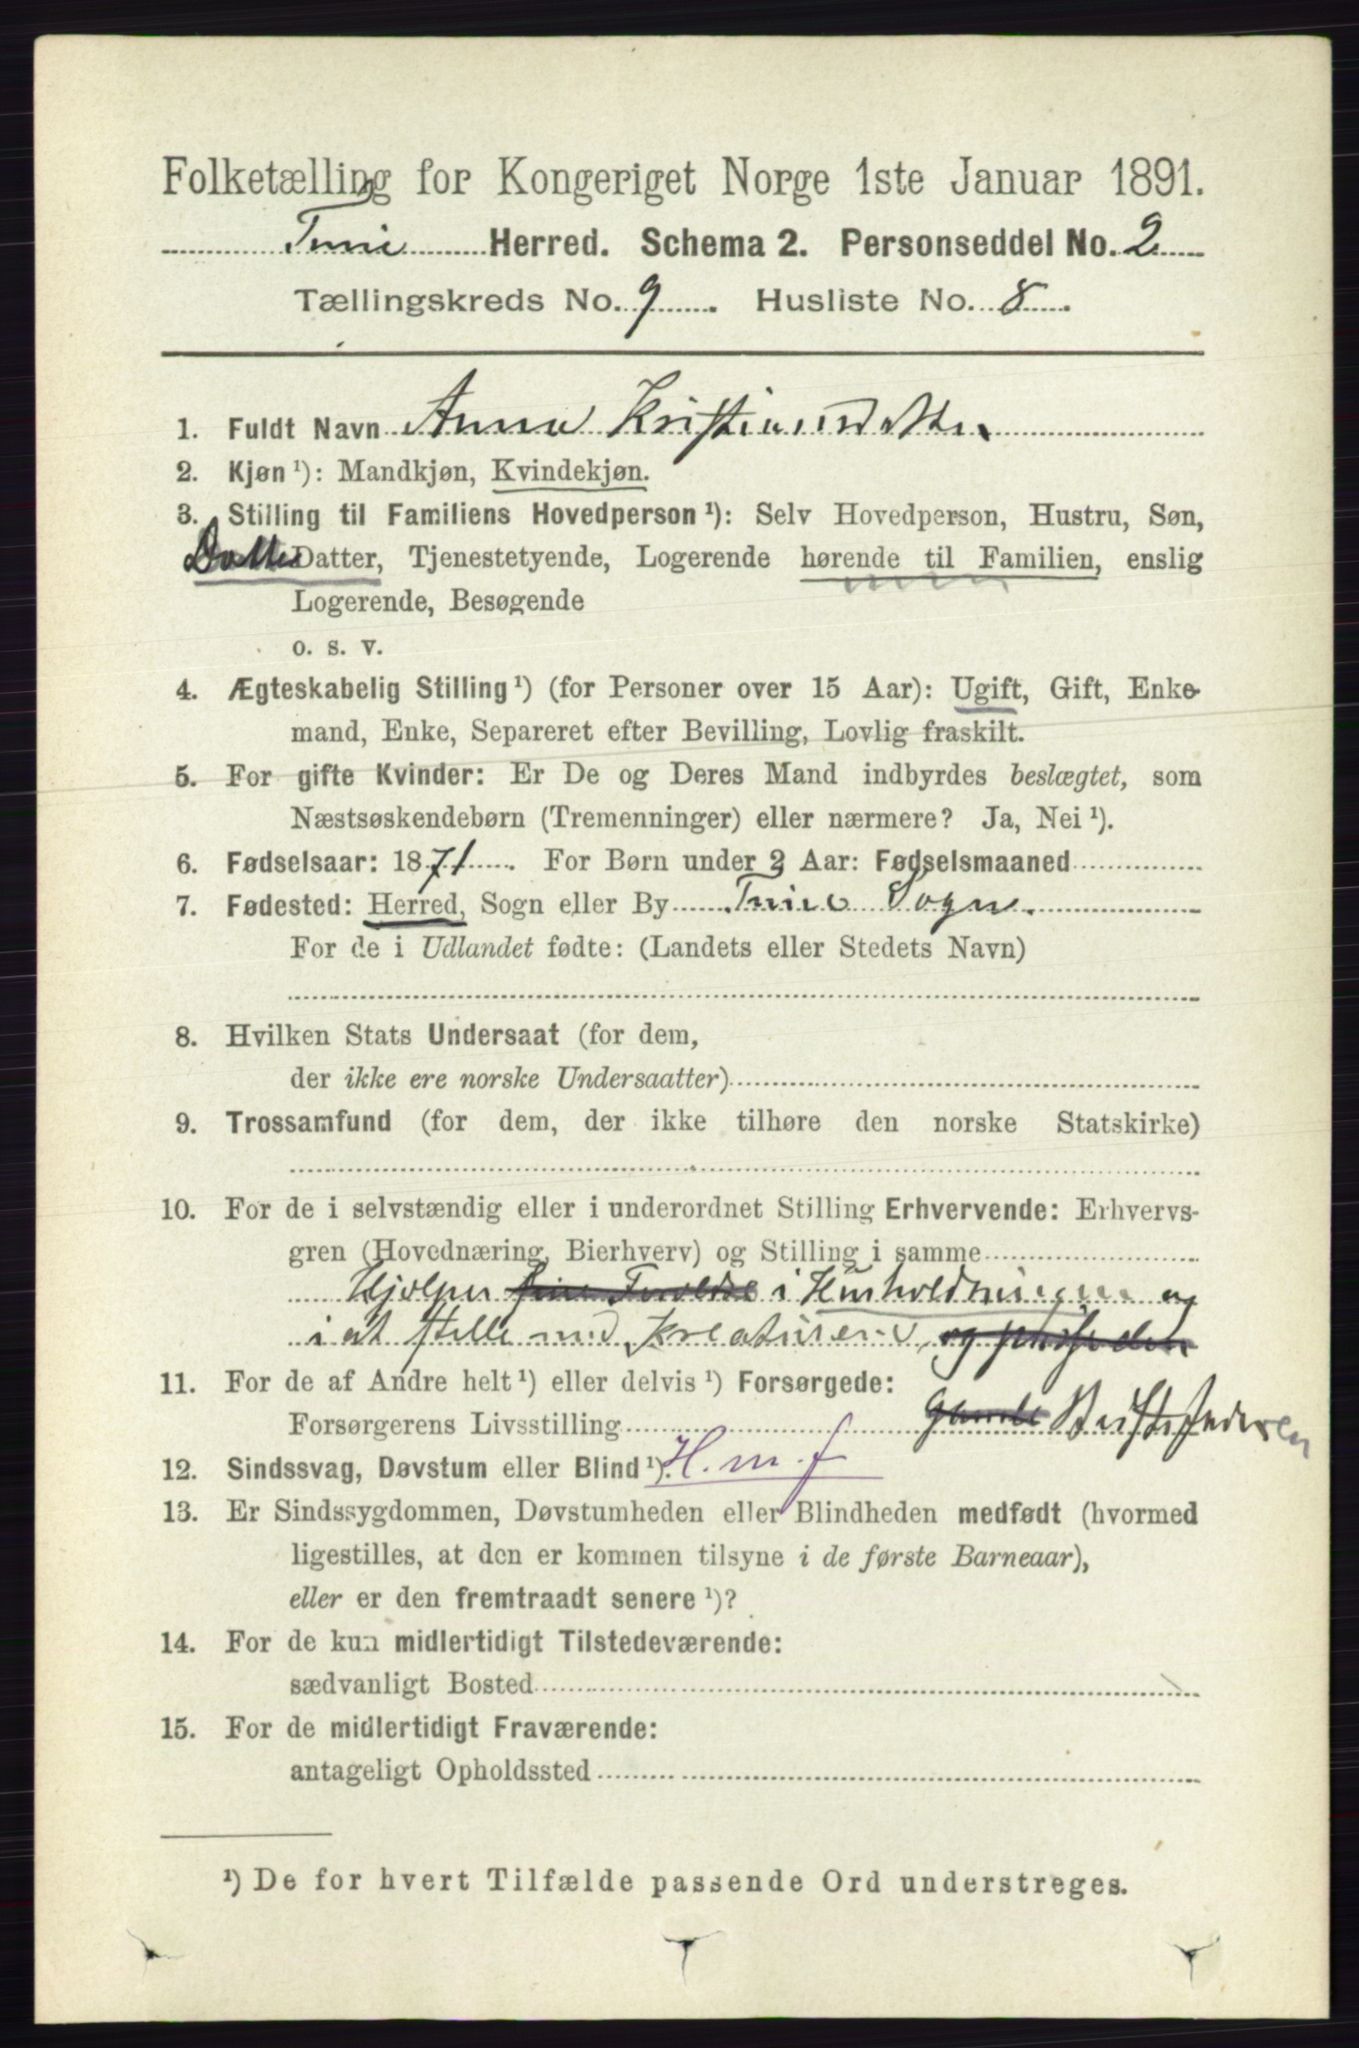 Folketælling for Kongeriget Norge 1ste Januar 1891.
Tune Herred. Schema 2. Personseddel No. 2
Tællingskreds No. 9. Husliste No. 8.
1. Fuldt Navn Anna Kristiansdatter
2. Kjøn ¹): Mandkjøn, Kvindekjøn.
3. Stilling til Familiens Hovedperson ¹): Selv Hovedperson, Hustru, Søn,
Datter, Tjenestetyende, Logerende hørende til Familien, enslig
Logerende, Besøgende
o. s. v.
4. Ægteskabelig Stilling ¹) (for Personer over 15 Aar): Ugift, Gift, Enke-
mand, Enke, Separeret efter Bevilling, Lovlig fraskilt.
5. For gifte Kvinder: Er De og Deres Mand indbyrdes beslægtet, som
Næstsøskendebørn (Tremenninger) eller nærmere? Ja, Nei ¹).
6. Fødselsaar: 1871. For Børn under 2 Aar: Fødselsmaaned
7. Fødested: Herred, Sogn eller By Tune Sogn.
For de i Udlandet fødte: (Landets eller Stedets Navn)
8. Hvilken Stats Undersaat (for dem,
der ikke ere norske Undersaatter)
9. Trossamfund (for dem, der ikke tilhøre den norske Statskirke)
10. For de i selvstændig eller i underordnet Stilling Erhvervende: Erhvervs-
gren (Hovednæring, Bierhverv) og Stilling i samme
Hjelper i Husholdningen og
i at stelle med Kreaturene
11. For de af Andre helt ¹) eller delvis ¹) Forsørgede:
Forsørgerens Livsstilling
12. Sindssvag, Døvstum eller Blind ¹). H. m. f
13. Er Sindssygdommen, Døvstumheden eller Blindheden medfødt (hvormed
ligestilles, at den er kommen tilsyne i de første Barneaar),
eller er den fremtraadt senere ¹)?
14. For de kun midlertidigt Tilstedeværende:
sædvanligt Bosted
15. For de midlertidigt Fraværende:
antageligt Opholdssted
¹) De for hvert Tilfælde passende Ord understreges.